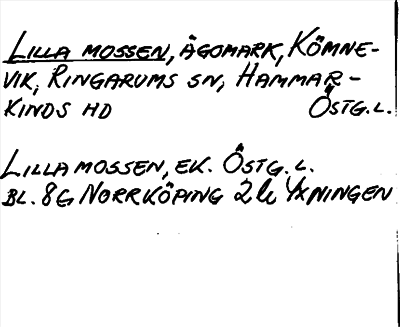 LILLA MOSSEN, ÄGOMARK, KÖMNE-
VIK, RINGARUMS SN, HAMMAR-
KINDS HD ÖSTG.L.
LILLA MOSSEN, EK. ÖSTG.L.
BL. 8G NORRKÖPING 2 YXNINGEN